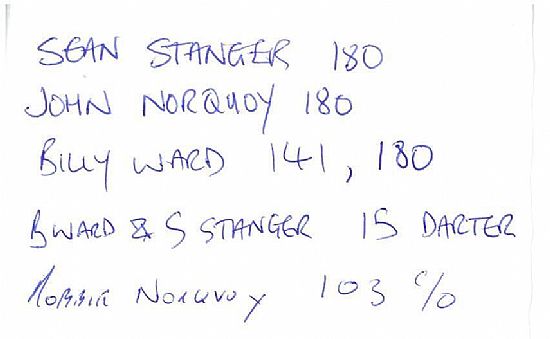 SEAN STANGER 180
JOHN NORQUOY 180
BILLY WARD 141, 180
B WARD & S STANGER 15 DARTER
ROBBIE NORQUOY 103 c/o